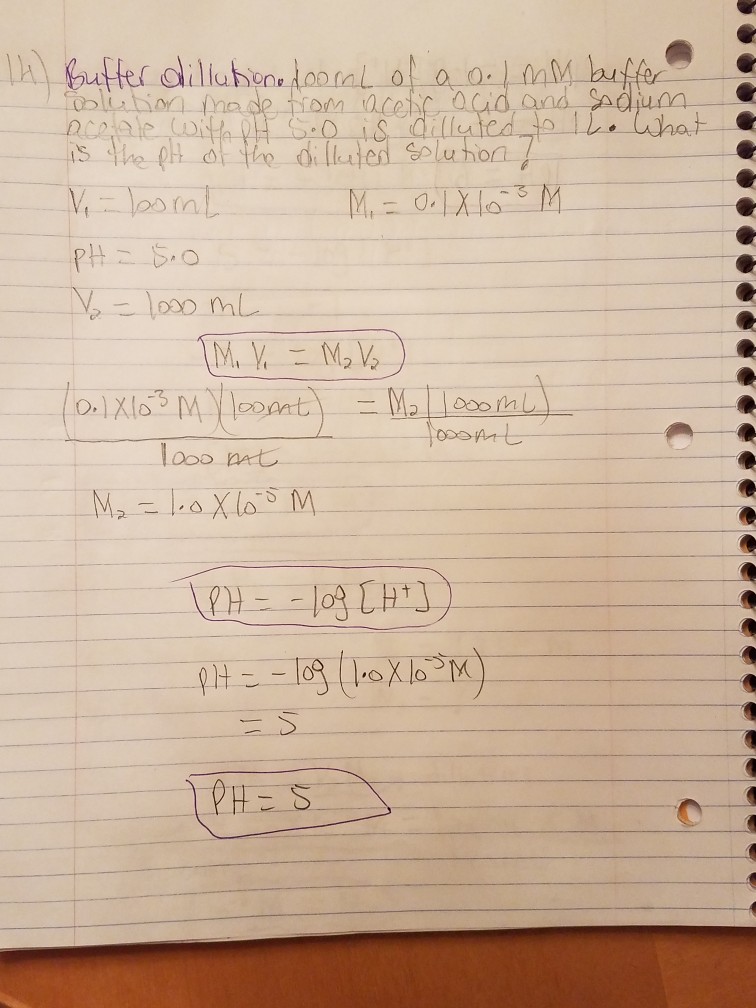 14) Buffer dillution. 100mL of a 0.1 mM buffer
solution made from acetic acid and sodium
acetate with pH 5.0 is dilluted to 1L. What
is the pH of the dilluted solution?
V₁ = 100mL M₁ = 0.1X10⁻³ M
pH = 5.0
V₂ = 1000 mL
M₁ V₁ = M₂ V₂
(0.1X10⁻³ M)(100mL) = M₂(1000mL)
1000 mL 1000mL
M₂ = 1.0 X 10⁻⁵ M
PH = -log [H⁺]
pH = -log (1.0X10⁻⁵M)
= 5
PH = 5